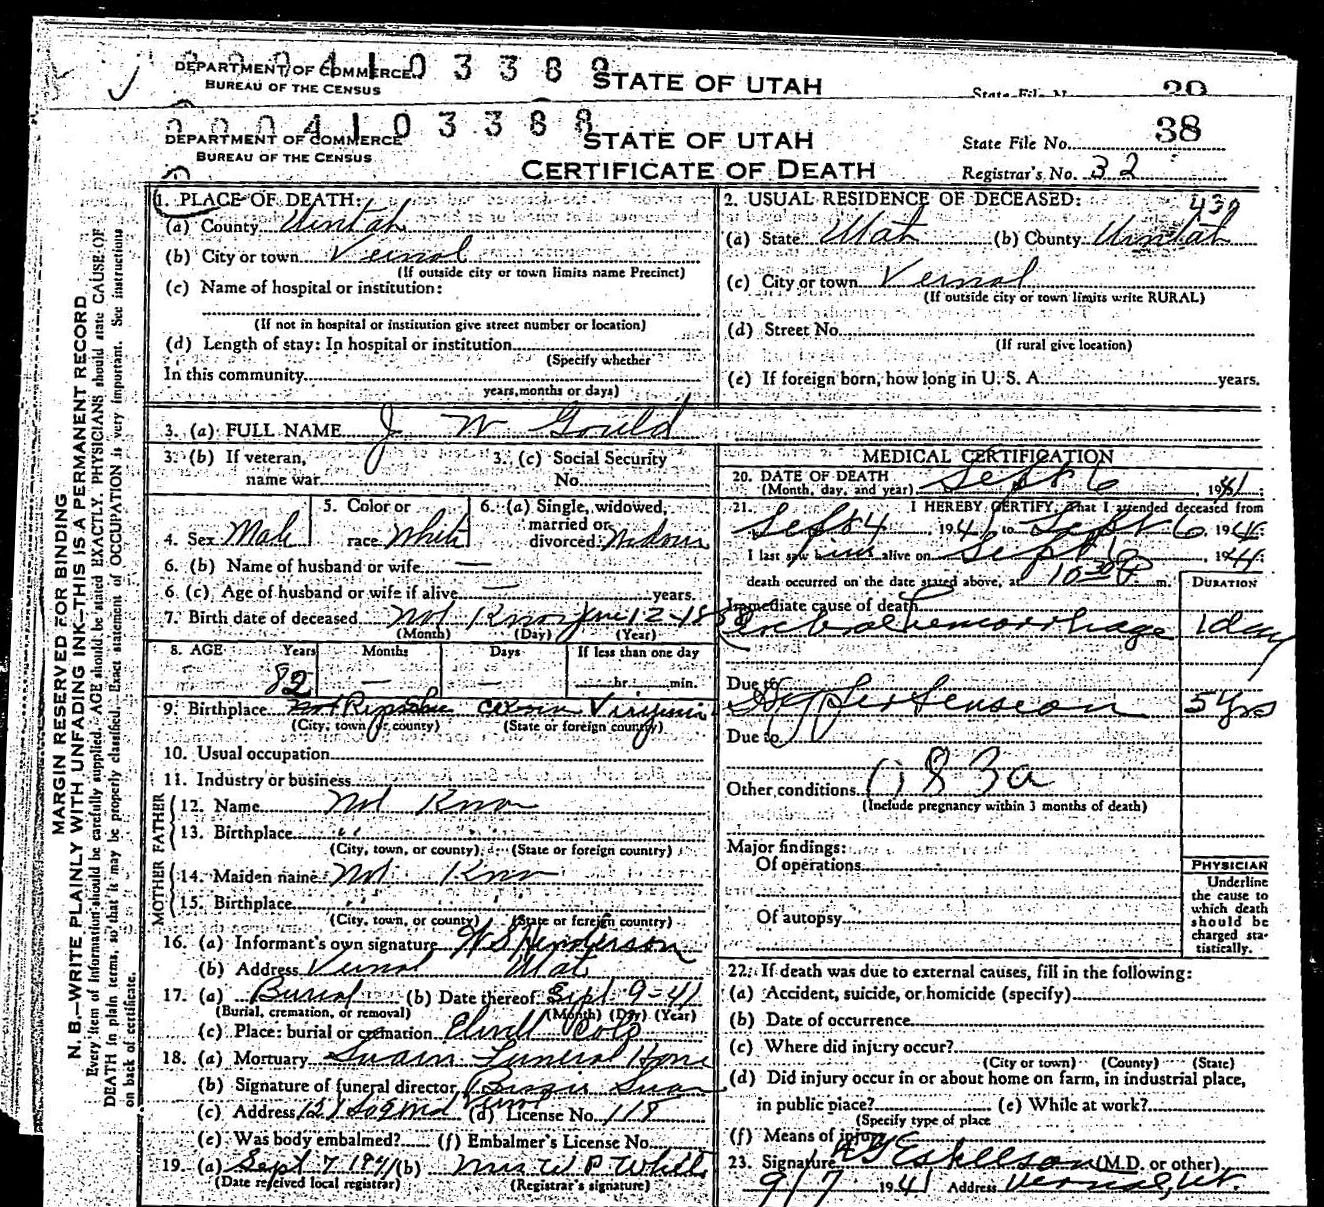 DEPARTMENT OF COMMERCE
BUREAU OF THE CENSUS
STATE OF UTAH
State Fil N 39
0004103388
DEPARTMENT OF COMMERCE
BUREAU OF THE CENSUS
STATE OF UTAH
CERTIFICATE OF DEATH
State File No. 38
Registrar's No. 32
MARGIN RESERVED FOR BINDING
N. B.—WRITE PLAINLY WITH UNFADING INK—THIS IS A PERMANENT RECORD
Every item of information should be carefully supplied. AGE should be stated EXACTLY. PHYSICIANS should state CAUSE OF
DEATH in plain terms, so that it may be properly classified. Exact statement of OCCUPATION is very important. See instructions
on back of certificate.
1. PLACE OF DEATH:
(a) County Uintah
(b) City or town Vernal
(If outside city or town limits name Precinct)
(c) Name of hospital or institution:
(If not in hospital or institution give street number or location)
(d) Length of stay: In hospital or institution
(Specify whether
In this community
years, months or days)
2. USUAL RESIDENCE OF DECEASED: 439
(a) State Utah (b) County Uintah
(c) City or town Vernal
(If outside city or town limits write RURAL)
(d) Street No.
(If rural give location)
(e) If foreign born, how long in U. S. A. years.
3. (a) FULL NAME J W Gould
3. (b) If veteran,
name war
3. (c) Social Security
No.
4. Sex Male
5. Color or
race White
6. (a) Single, widowed,
married or
divorced: Widower
6. (b) Name of husband or wife —
6 (c). Age of husband or wife if alive — years.
7. Birth date of deceased Not Know June 12-18
(Month) (Day) (Year)
8. AGE Years Months Days If less than one day
82 — — hr. min.
9. Birthplace Virginia
(City, town or county) (State or foreign country)
10. Usual occupation
11. Industry or business
FATHER
12. Name Not Know
13. Birthplace " "
(City, town, or county) (State or foreign country)
MOTHER
14. Maiden name Not Know
15. Birthplace " "
(City, town, or county) (State or foreign country)
16. (a) Informant's own signature W S Henderson
(b) Address Vernal Utah
17. (a) Burial (b) Date thereof Sept 9-41
(Burial, cremation, or removal) (Month) (Day) (Year)
(c) Place: burial or cremation
18. (a) Mortuary Swain Funeral Home
(b) Signature of funeral director Swain
(c) Address (d) License No. 118
(e) Was body embalmed? (f) Embalmer's License No.
19. (a) Sept 7 1941 (b) Mrs W P White
(Date received local registrar) (Registrar's signature)
MEDICAL CERTIFICATION
20. DATE OF DEATH
(Month, day, and year) Sept 6, 1941
21. I HEREBY CERTIFY, that I attended deceased from
Sept 4, 1941 to Sept 6, 1941
I last saw him alive on Sept 6, 1941
death occurred on the date stated above, at 10 30 P m. DURATION
Immediate cause of death
Cerebral hemorrhage 1 day
Due to
Hypertension 5 yrs
Due to
Other conditions 83a
(Include pregnancy within 3 months of death)
Major findings:
Of operations
Of autopsy
PHYSICIAN
Underline
the cause to
which death
should be
charged sta-
tistically.
22. If death was due to external causes, fill in the following:
(a) Accident, suicide, or homicide (specify)
(b) Date of occurrence
(c) Where did injury occur?
(City or town) (County) (State)
(d) Did injury occur in or about home on farm, in industrial place,
in public place? (e) While at work?
(Specify type of place
(f) Means of injury
23. Signature (M.D. or other)
9/7 1941 Address Vernal, Ut.